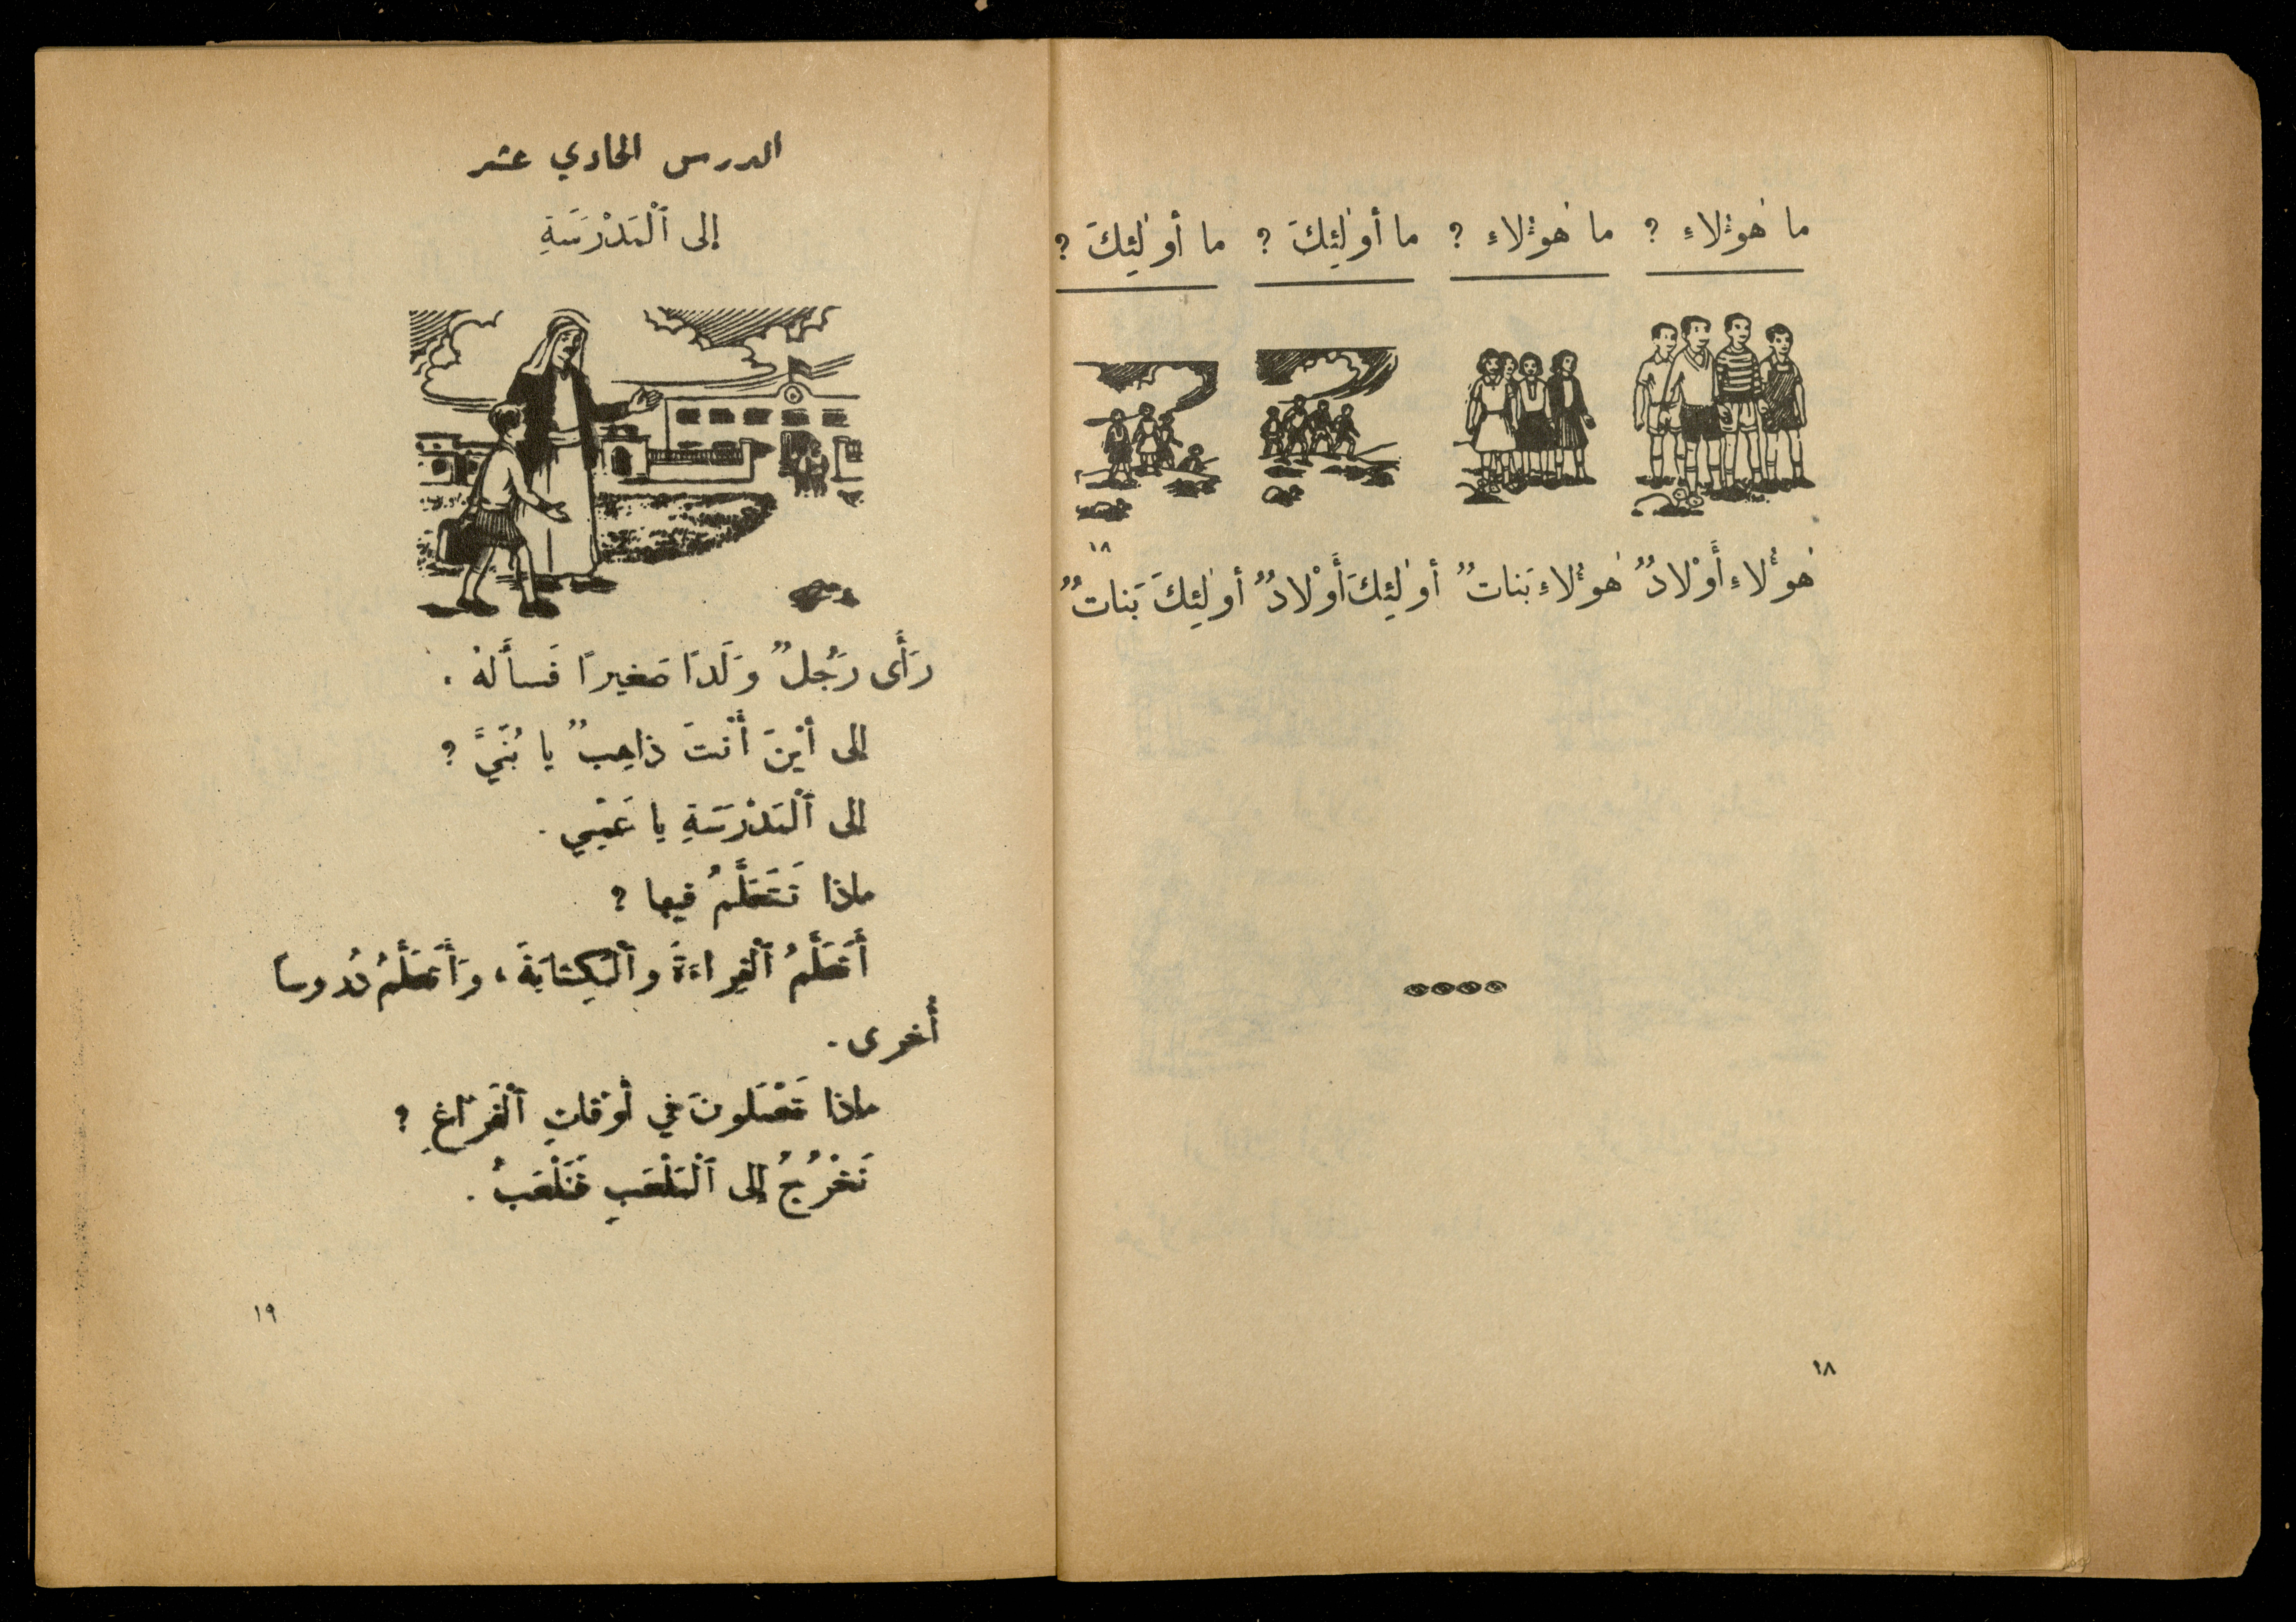 ما هٰؤُلاءِ ? ما هٰؤُلاءِ ? ما أُولٰئِكَ ? ما أُولٰئِكَ ?
١٨
هٰؤُلاءِ أَوْلادٌ هٰؤُلاءِ بَناتٌ أولٰئِكَ أَوْلادٌ أولٰئِكَ بَناتٌ
١٨
الدرس الحادي عشر
إلى ٱلْمَدْرَسَةِ
رَأَى رَجُلٌ وَلَدًا صَغيرًا فَسأَلهُ .
إلى أيْنَ أَنْتَ ذاهِبٌ يا بُنَيَّ ?
إلى ٱلْمَدْرَسَةِ يا عَمّي .
ماذا تَتَعَلَّمُ فيها ?
أَتَعَلَّمُ ٱلْقِراءَةَ وٱلْكِتابَةَ ، وَأَتَعَلَّمُ دُروسًا
أُخرى .
ماذا تَعْمَلونَ في أوْقاتِ ٱلْفَرَاغِ ?
نَخْرُجُ إلى ٱلْمَلْعَبِ فَنَلْعَبُ .
١٩